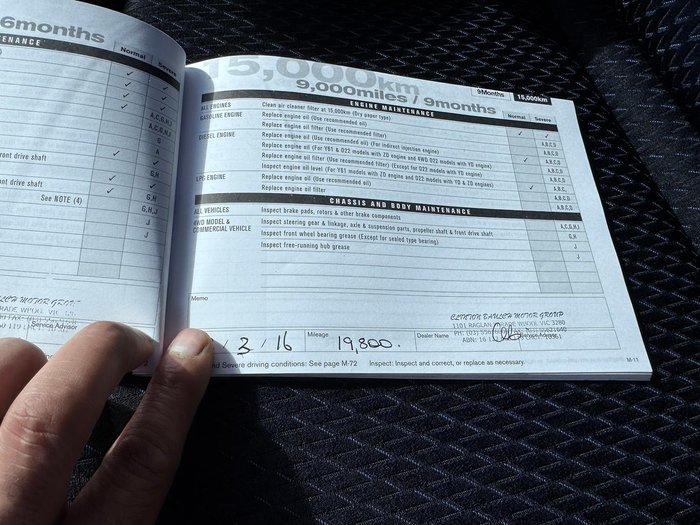 6months
ENANCE
Normal
Severe
A,C,G,H,I
A
G
ront drive shaft
A
G,H
nt drive shaft
G,H
See NOTE (4)
G,H,J
J
J
Service Advisor
15,000km
9,000miles / 9months
9Months
15,000km
ENGINE MAINTENANCE
Normal
Severe
ALL ENGINES
Clean air cleaner filter at 15,000km (Dry paper type)
GASOLINE ENGINE
Replace engine oil (Use recommended oil)
A,B,C,D
Replace engine oil (Use recommended filter)
A,B,C,D
DIESEL ENGINE
Replace engine oil (Use recommended oil) (For indirect injection engine)
A,B,C,D
Replace engine oil (For Y61 & D22 models with ZD engine and EWD D22 models with YD engine)
Replace engine oil filter (Use recommended filter) (Except for D22 models with YD engine)
Inspect engine oil level (For Y61 models with ZD engine and D22 models with YD & ZD engines)
LPG ENGINE
Replace engine oil (Use recommended oil)
Replace engine oil filter
CHASSIS AND BODY MAINTENANCE
ALL VEHICLES
Inspect brake pads, rotors & other brake components
A,C,G,H,J
4WD MODEL &
COMMERCIAL VEHICLE
Inspect steering gear & linkage, axle & suspension parts, propeller shaft & front drive shaft
G,H
Inspect front wheel bearing grease (Except for sealed type bearing)
J
Inspect free-running hub grease
J
Memo
/ 3 / 16
Mileage
19,800.
Dealer Name
CLINTON BAULCH MOTOR GROUP
1101 RAGLAN PARADE W'POOL VIC 3280
and Severe driving conditions: See page M-72
Inspect: Inspect and correct, or replace as necessary.
M-11